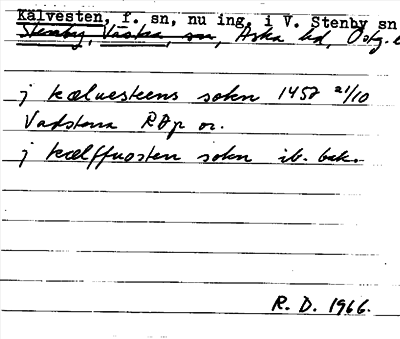 Kälvesten, f. sn, nu ing. i V. Stenby sn
Stenby, Västra, sn, Aska hd, Östg.
j kæluesteens sokn 1457 21/10
Vadstena RDp or.
j kælffuosten sokn ib. bak.
R. D. 1966.